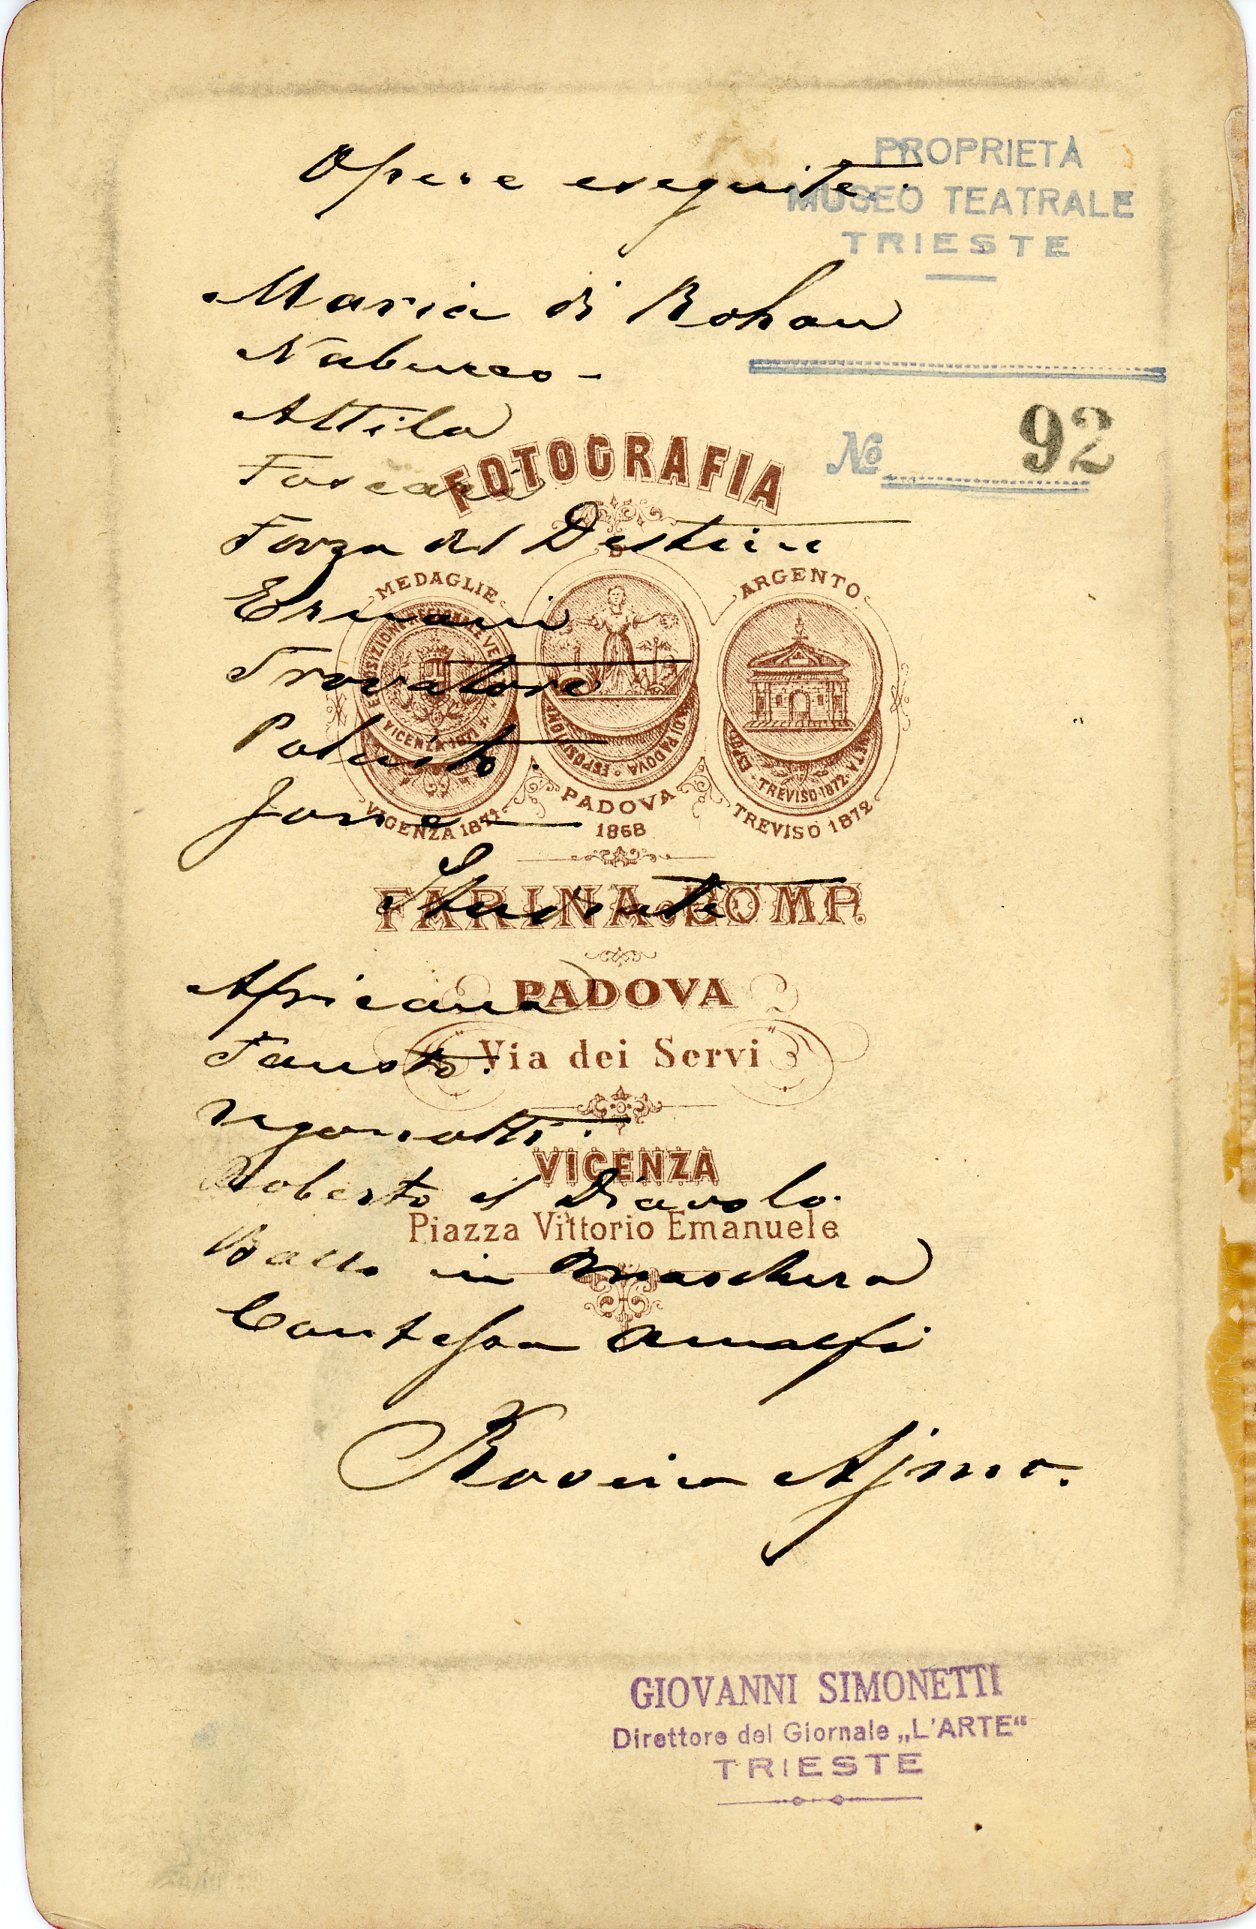 Opere eseguite:
PROPRIETÀ
MUSEO TEATRALE
TRIESTE
Maria di Rohan
Nabucco -
Attila
No 92
Foscari
FOTOGRAFIA
Forza del Destino
D'
MEDAGLIE
ARGENTO
Ernani
Trovatore
Poliuto.
VICENZA 1871
PADOVA
1868
TREVISO 1872
ESPOSIZIONE REGIONALE VENETA
VICENZA 1871
ESPOSIZIONE DI PADOVA
TREVISO 1872
Jone
Studiate
FARINA & COMP.
Africana
PADOVA
Fausto.
Via dei Servi
VICENZA
Roberto il Diavolo.
Piazza Vittorio Emanuele
Ballo in Maschera
Contessa Amalfi
Ajmo.
GIOVANNI SIMONETTI
Direttore del Giornale „L'ARTE“
TRIESTE